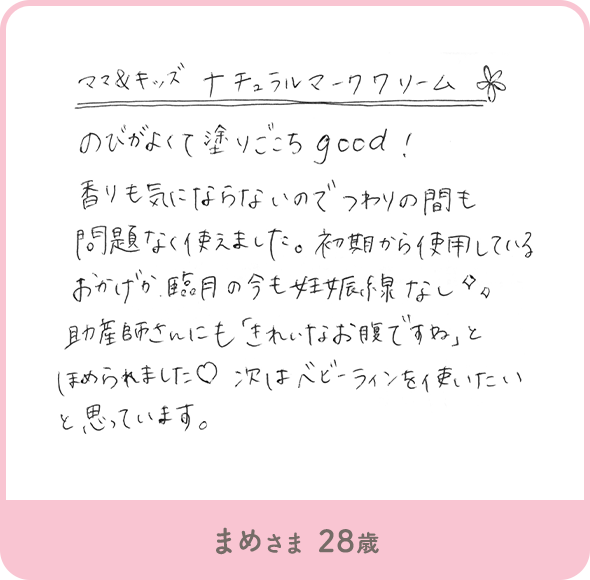 ママ&キッズ ナチュラルマーククリーム
のびがよくて塗りごこちgood!
香りも気にならないのでつわりの間も
問題なく使えました。初期から使用している
おかげか、臨月の今も妊娠線なし
助産師さんにも「きれいなお腹ですね」と
ほめられました♡ 次はベビーラインを使いたい
と思っています。
まめさま 28歳